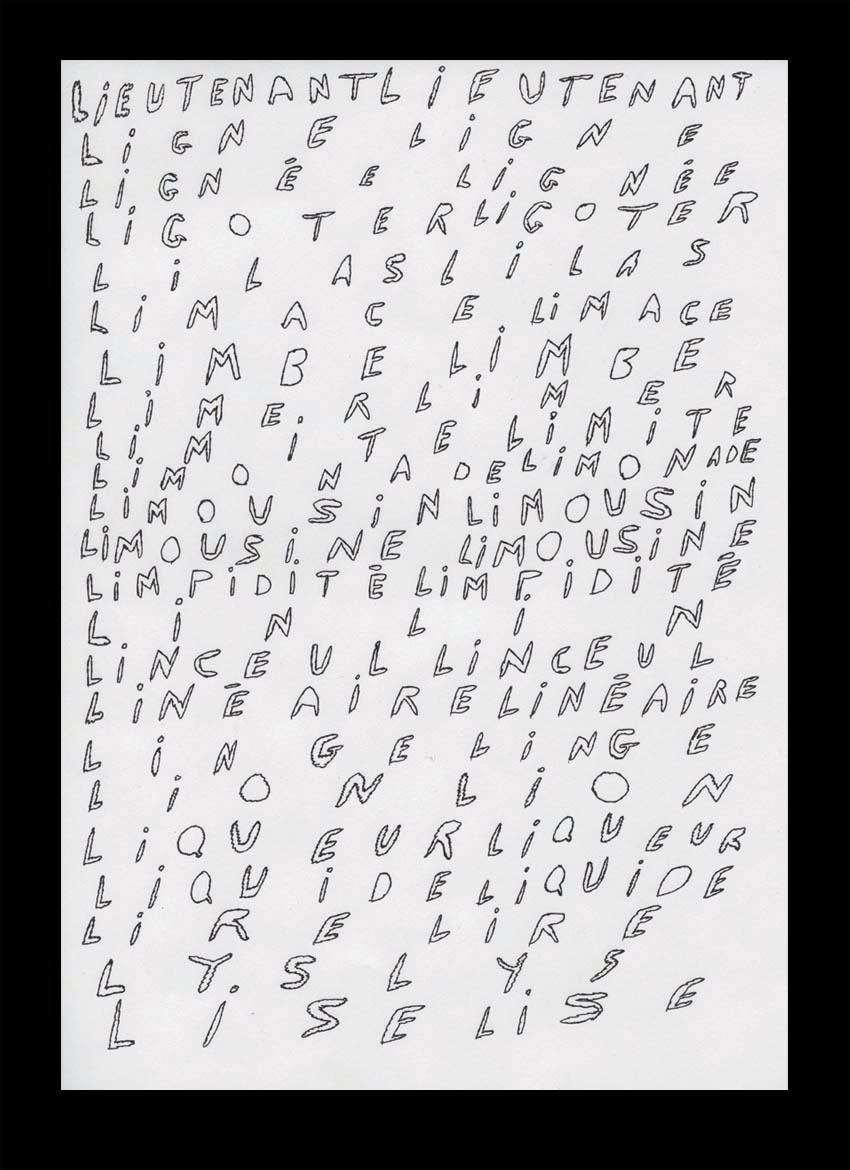 LiEUTENANTLiEUTENANT
LiGNELiGNE
LiGNÉELiGNÉE
LiGOTERLiGOTER
LiLASLiLAS
LiMACELiMACE
LiMBELiMBE
LiMERLiMER
LiMiTELiMiTE
LiMONADELiMONADE
LiMOUSiNLiMOUSiN
LiMOUSiNELiMOUSiNE
LiMPiDiTÉLiMPiDiTÉ
LiNLiN
LiNCEULLiNCEUL
LiNÉAiRELiNÉAiRE
LiNGELiNGE
LiONLiON
LiQUEURLiQUEUR
LiQUiDELiQUiDE
LiRELiRE
LYSLYS
LiSELiSE